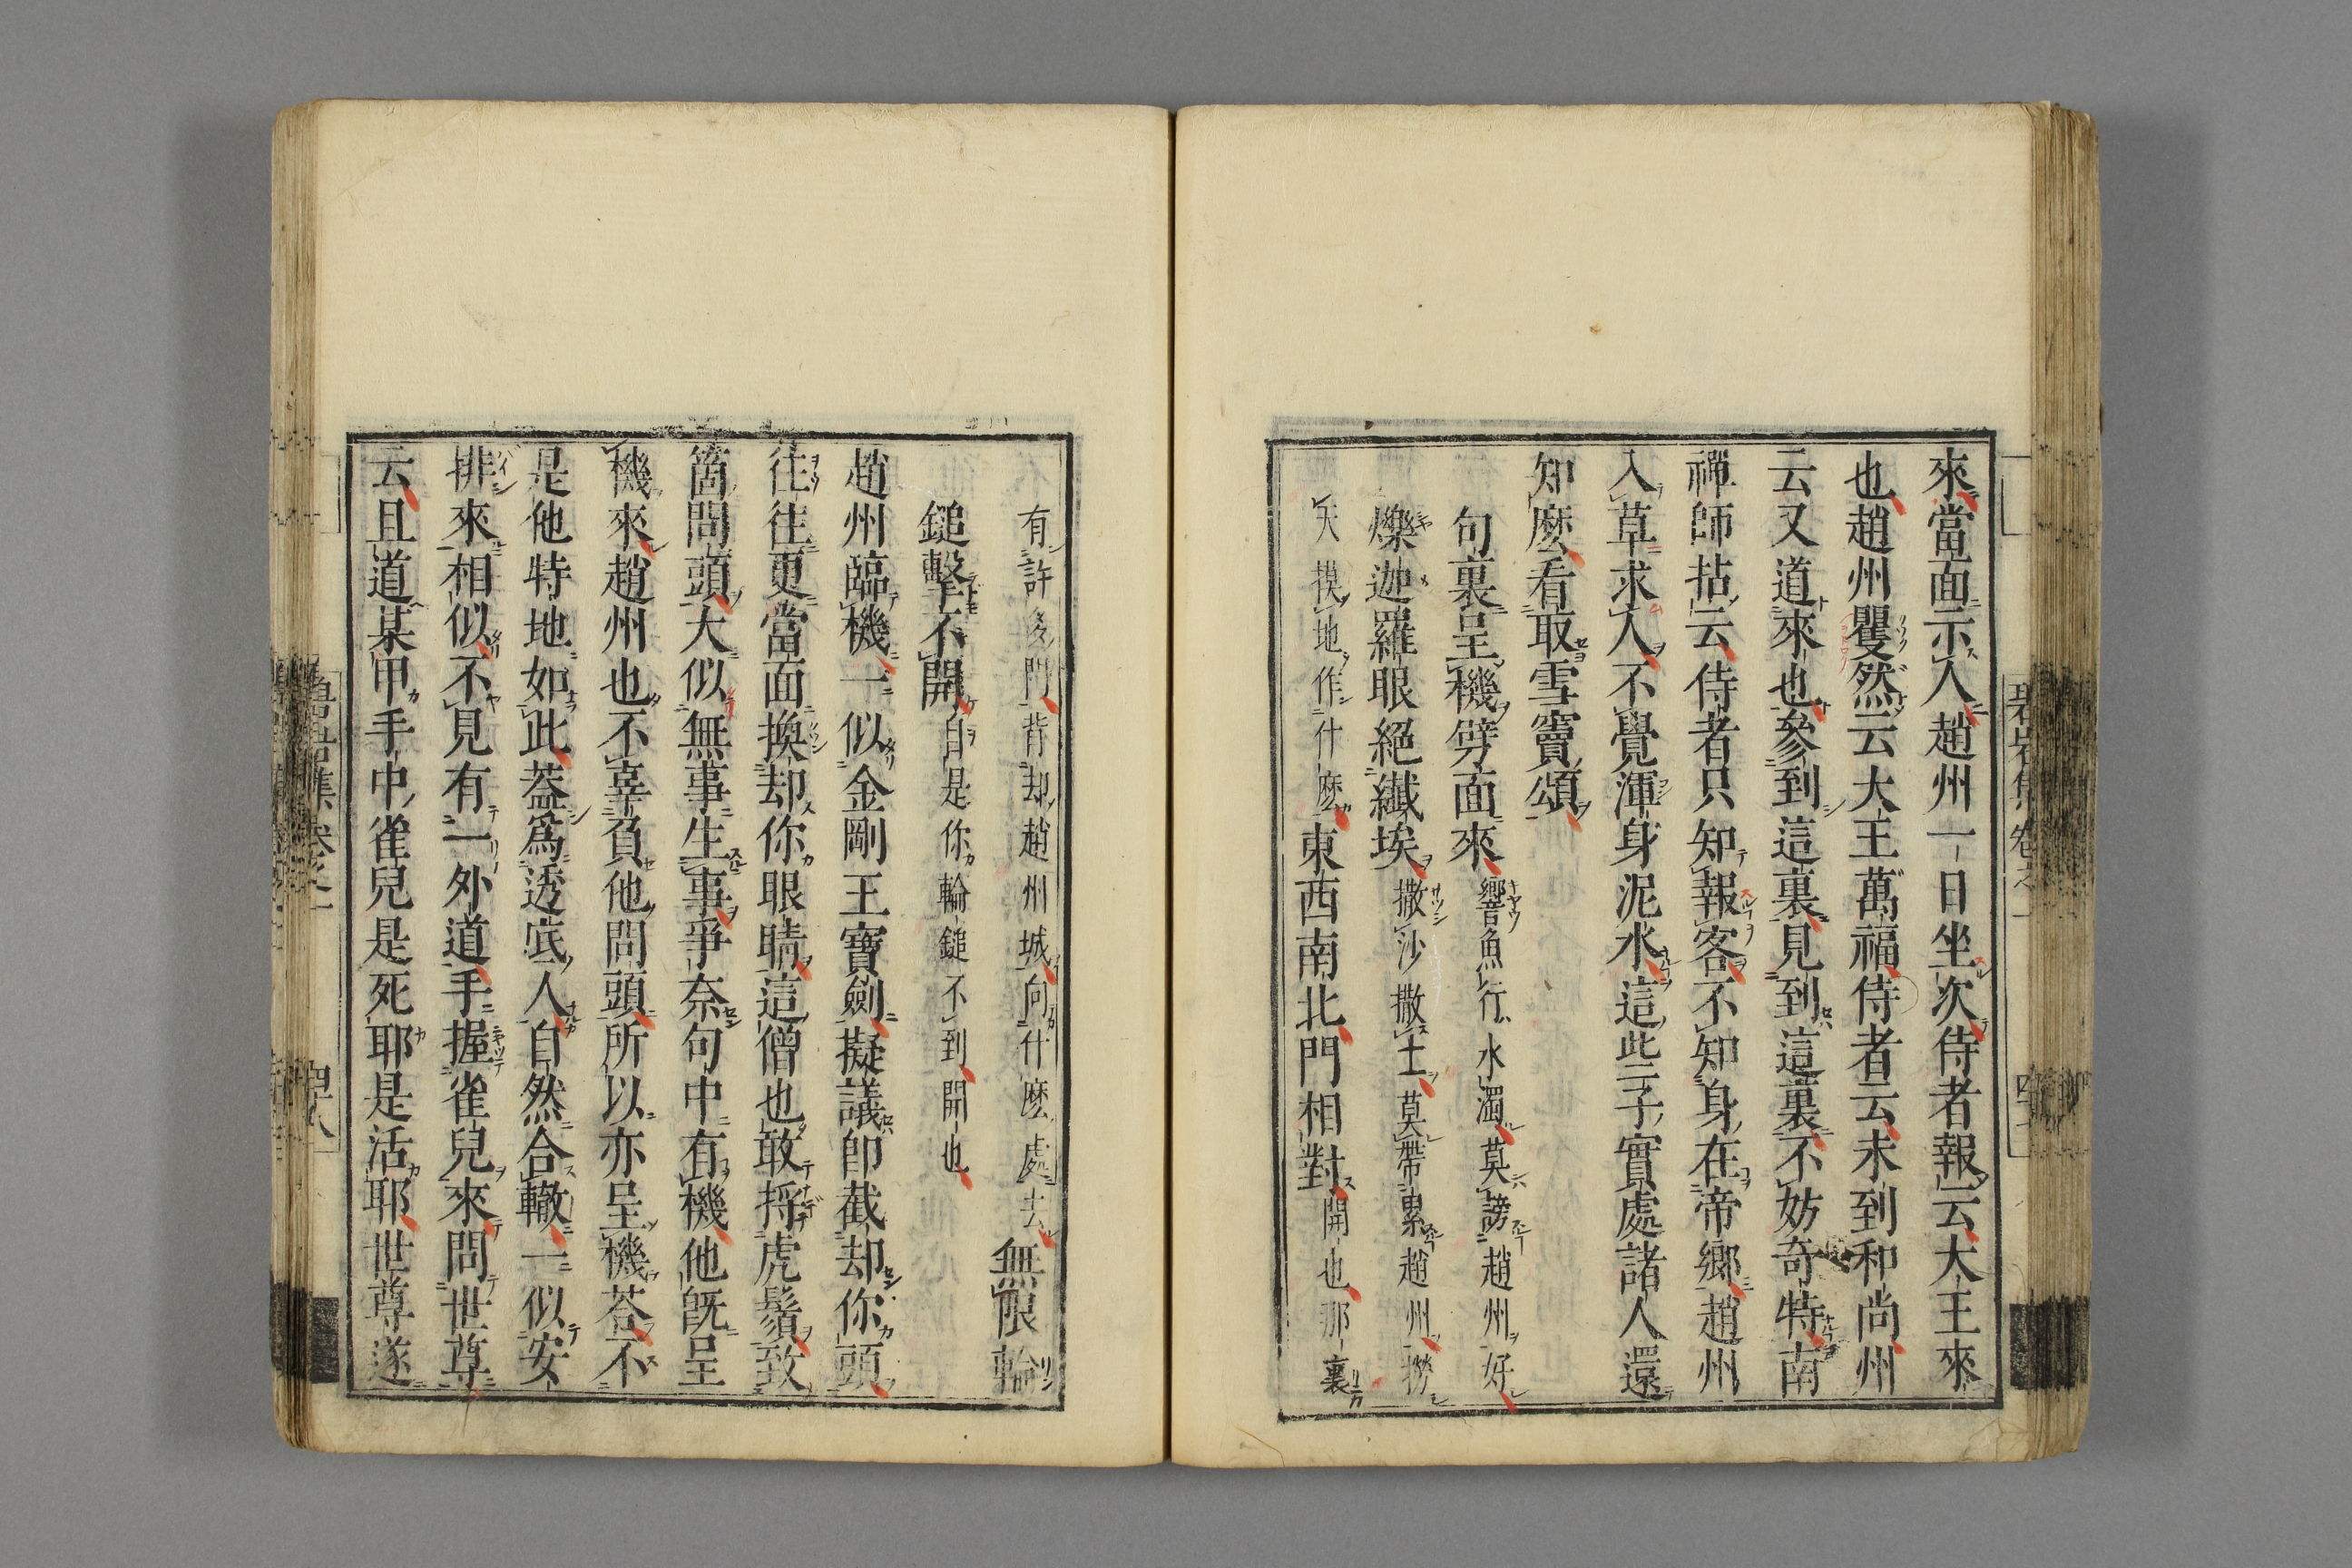 來當面示人趙州一日坐次侍者報云大王來
也趙州矍然云大王萬福侍者云未到和尚州
云又道來也參到這裏見到這裏不妨奇特南
禪師拈云侍者只知報客不知身在帝鄉趙州
入草求人不覺渾身泥水這些子實處諸人還
知麽看取雪竇頌
句裏呈機劈面來響魚行水濁莫謗趙州好
爍迦羅眼絕纖埃撒沙撒土莫帶累趙州撈
天摸地作什麽東西南北門相對開也那裏
有許多門背却趙州城向什麽處去無限輪
鎚擊不開自是你輪鎚不到開也
趙州臨機一似金剛王寶劍擬議卽截却你頭
往往更當面換却你眼睛這僧也敢捋虎鬚致
箇問頭大似無事生事爭奈句中有機他旣呈
機來趙州也不辜負他問頭所以亦呈機荅不
是他特地如此葢爲透底人自然合轍一似安
排來相似不見有一外道手握雀兒來問世尊
云且道某甲手中雀兒是死耶是活耶世尊遂